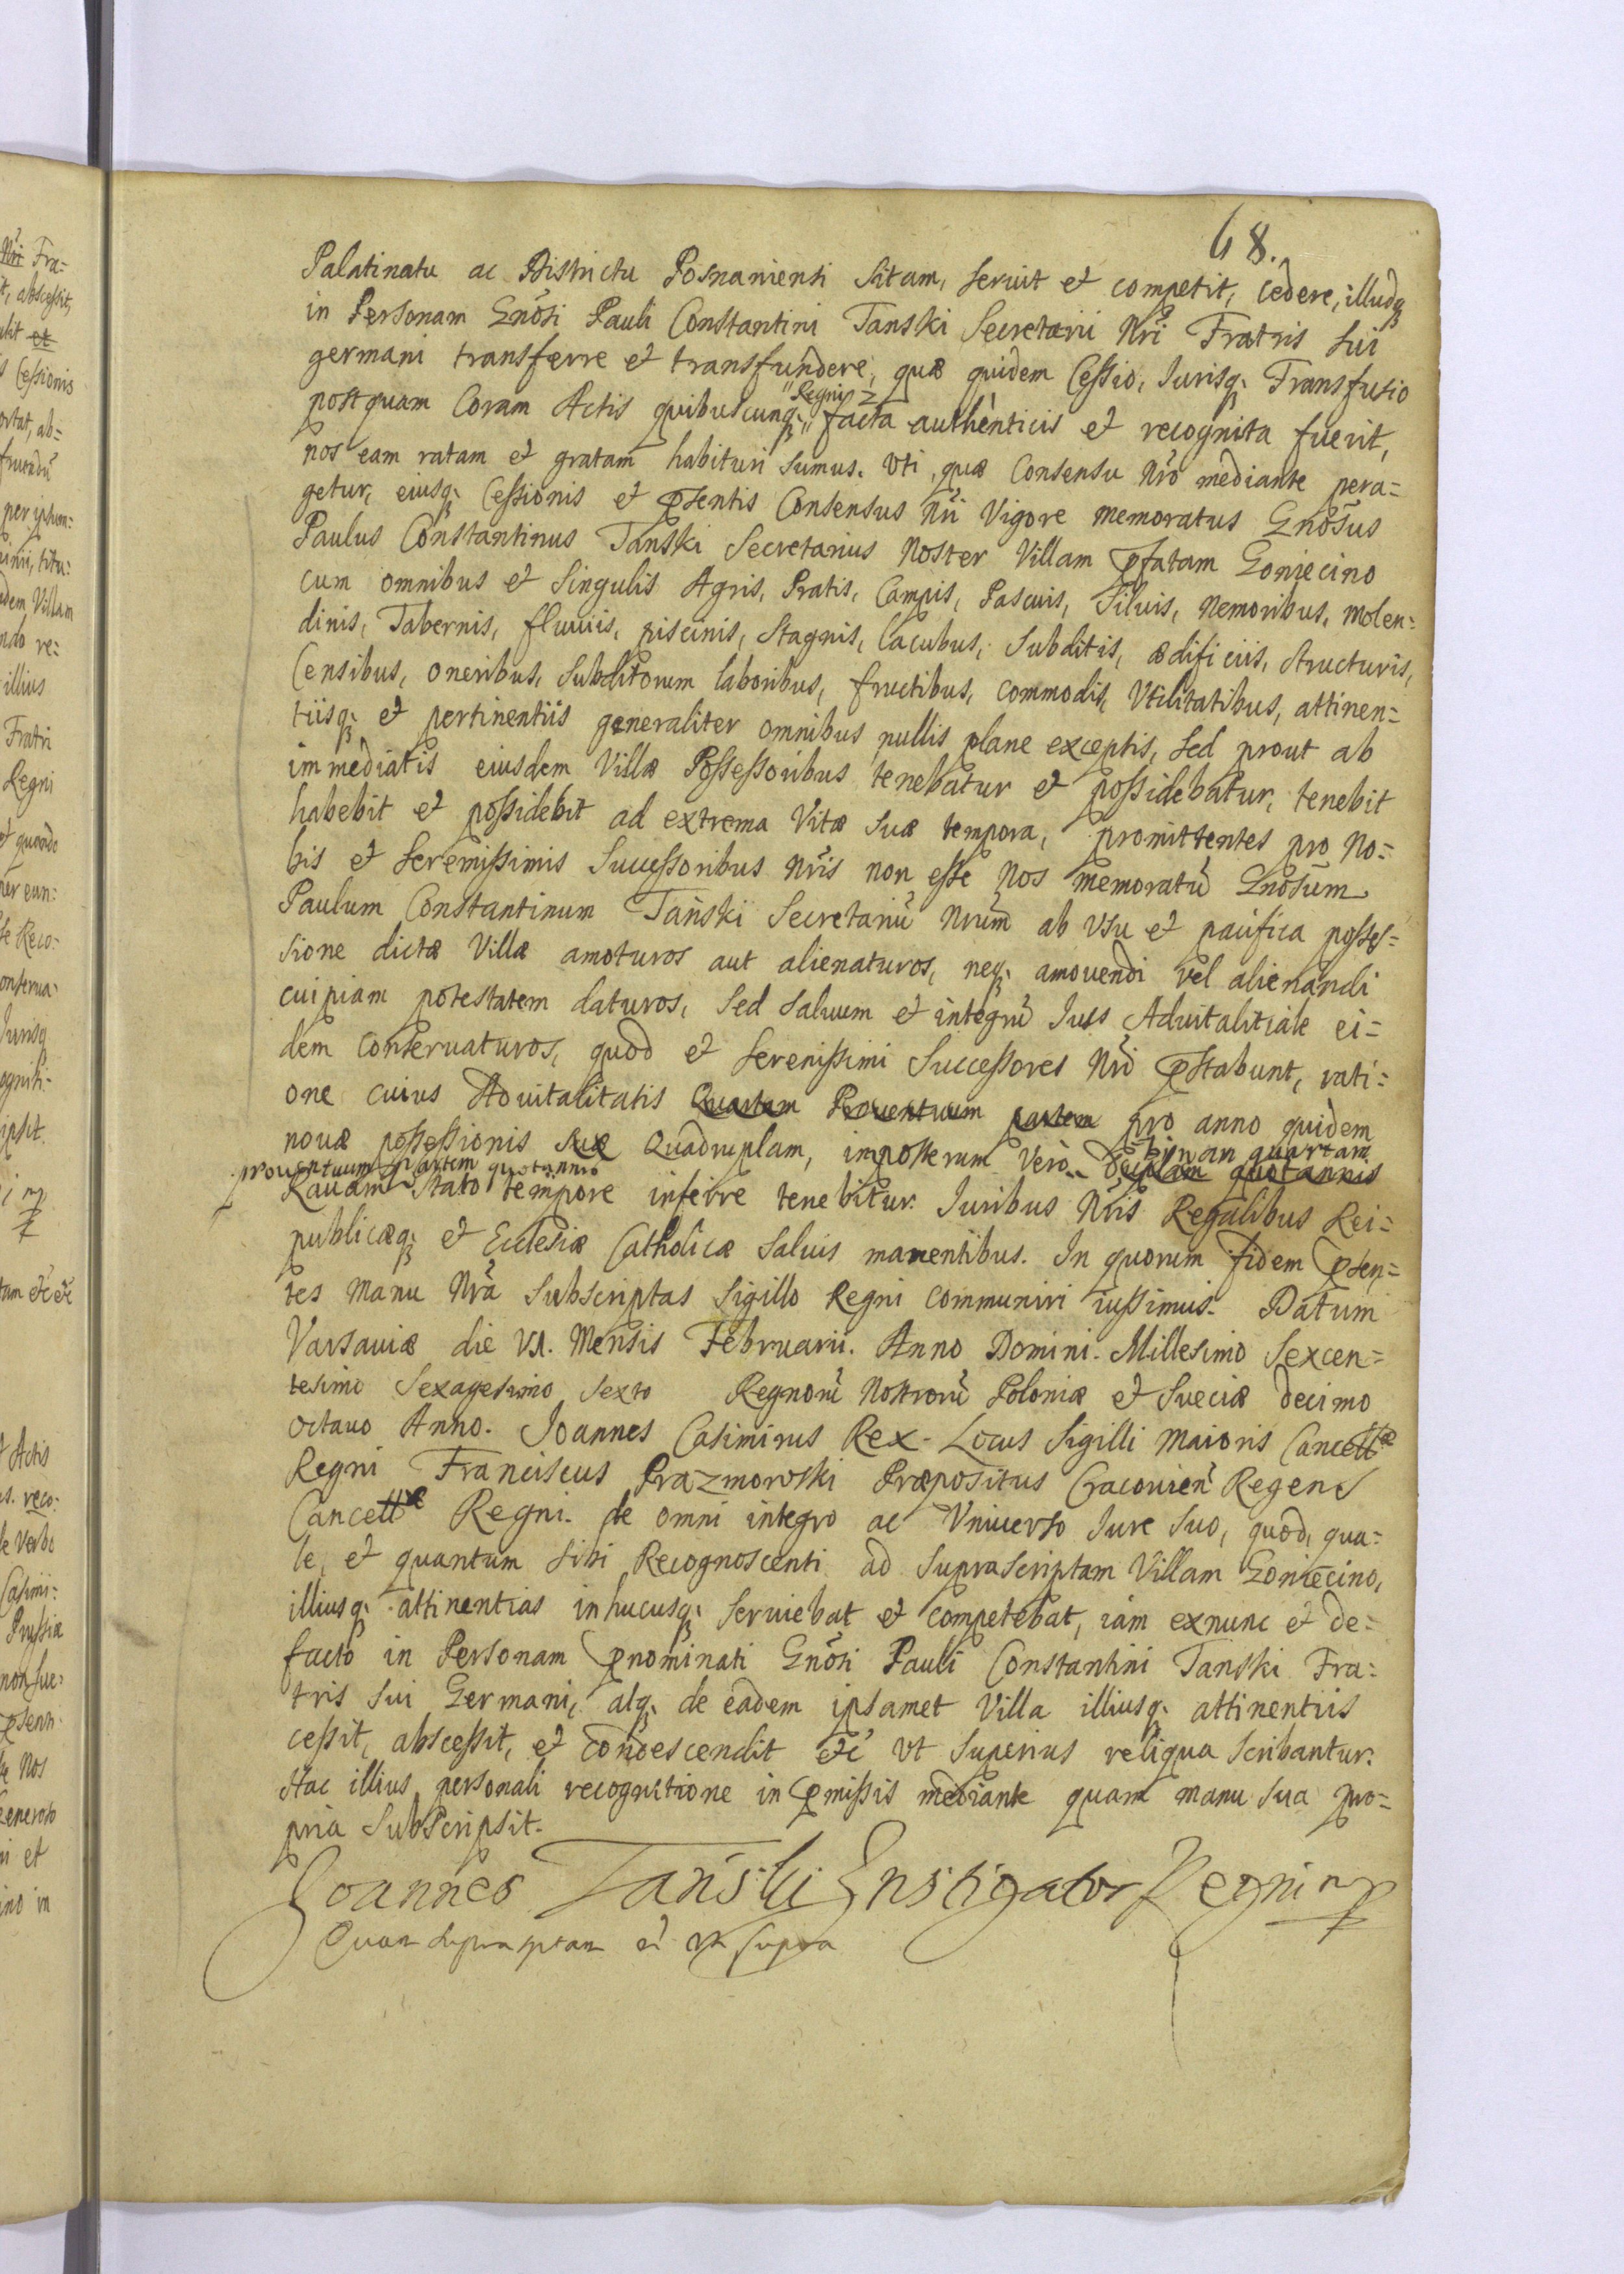 68.
Palatinatu ac Districtu Posnaniensi sitam, seruit et competit, cedere, illudq3
in Personam Gnõsi Pauli Constantini Tanski Secretarii Nri Fratris sui
germani transferre et transfundere, quæ quidem Cessio, Iurisq3 Transfusio
postquam Coram Actis quibuscunq3 "Regni" facta authenticis et recognita fuerit,
nos eam ratam et gratam habituri sumus. Vti, quæ Consensu Nro mediante pera=
getur, eiusq3 Cessionis et pſentis Consensus Nri Vigore memoratus Gnõsus
Paulus Constantinus Tanski Secretarius Noster Villam pfatam Goniecino
cum omnibus et Singulis Agris, Pratis, Campis, Pascuis, Siluis, Nemoribus, Molen=
dinis, Tabernis, fluuiis, piscinis, Stagnis, Lacubus, Subditis, ædificiis, structuris,
Censibus, oneribus, Subditorum laboribus, fructibus, commodis, Vtilitatibus, attinen=
tiisq3 et pertinentiis generaliter omnibus nullis plane exceptis, sed prout ab
immediatis eiusdem Villæ Possessoribus tenebatur et possidebatur, tenebit
habebit et possidebit ad extrema Vitæ suæ tempora, promittentes pro No=
bis et serenissimis Successoribus Nris non esse Nos memoratũ Gnõsum
Paulum Constantinum Tański Secretariũ Nrum ab Vsu et pacifica posses=
sione dictæ Villæ amoturos aut alienaturos, neq3 amouendi vel alienandi
cuipiam potestatem daturos, sed saluum et integrũ Ius Aduitalitiale ei=
dem conseruaturos, quod et serenissimi Successores Nri pstabunt, rati=
one cuius Aduitalitatis Quartam Prouentuum partem pro anno quidem
nouæ possessionis suæ Quadruplam, imposterum vero duplam quotannis
binam quartam
prouentuum partem quotannis
Rauam stato tempore inferre tenebitur. Iuribus Nris Regalibus Rei=
publicæq3 et Ecclesiæ Catholicæ saluis manentibus. In quorum fidem pſen=
tes manu Nra Subscriptas Sigillo Regni communiri iussimus. Datum
Varsauiæ die VI. Mensis Februarii. Anno Domini. Millesimo Sexcen=
tesimo Sexagesimo Sexto Regnorũ Nostrorũ Poloniæ et Sueciæ decimo
octauo Anno. Joannes Casimirus Rex. Locus Sigilli Maioris Cancellæ
Regni Franciscus Prazmowski Præpositus Cracouien Regens
Cancellæ Regni. de omni integro ac Vniuerso Iure suo, quod, qua=
le, et quantum sibi Recognoscenti ad Suprascriptam Villam Goniecino,
illiusq3 attinentias inhucusq3 seruiebat et competebat, iam exnunc et de=
facto in Personam pnominati Gnõsi Pauli Constantini Tanski Fra=
tris sui Germani, atq3 de eadem ipsamet Villa illiusq3 attinentiis
cessit, abscessit, et condescendit etc Vt superius reliqua scribantur.
Hac illius personali recognitione in pmissis mediante quam manu sua pro=
pria Subscripsit.
Joannes Tański Instigator Regni mp
Quam supra sptam ut supra